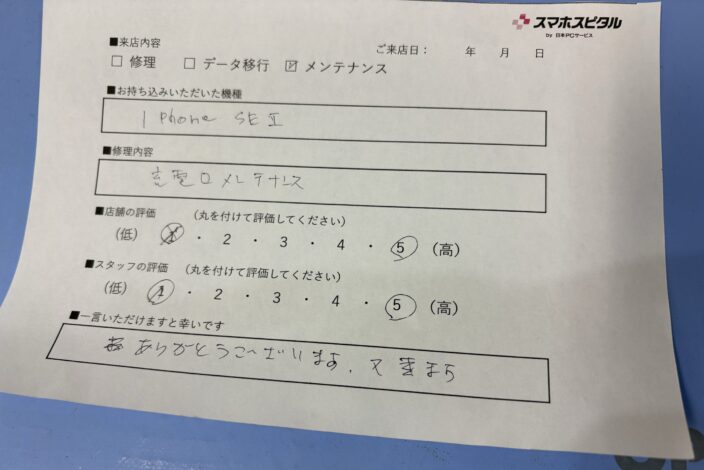 スマホスピタル
by 日本PCサービス
■来店内容
ご来店日： 年 月 日
□ 修理 □ データ移行 ☑ メンテナンス
■お持ち込みいただいた機種
iPhone SEⅡ
■修理内容
充電口メンテナンス
■店舗の評価 （丸を付けて評価してください）
（低） 1 ・ 2 ・ 3 ・ 4 ・ 5 （高）
■スタッフの評価 （丸を付けて評価してください）
（低） 1 ・ 2 ・ 3 ・ 4 ・ 5 （高）
■一言いただけますと幸いです
ありがとうございます、又
OP